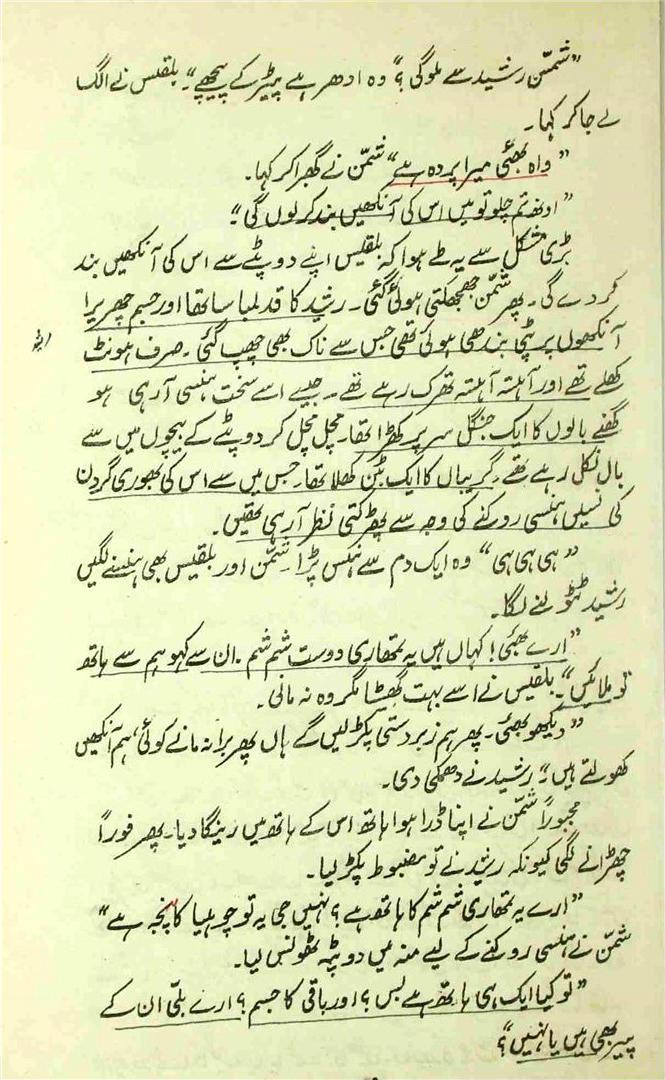 ”شمّن رشید سے ملوگی؟“ وہ ادھر ہے پیڑ کے پیچھے“۔ بلقیس نے الگ
لے جا کر کہا۔
”واہ بھئی میرا پردہ ہے“ شمّن نے گھبرا کر کہا۔
”اونھ تم چلو تو میں اس کی آنکھیں بند کر لوں گی“۔
بڑی مشکل سے یہ طے ہوا کہ بلقیس اپنے دوپٹے سے اس کی آنکھیں بند
کر دے گی۔ پھر شمّن جھجھکتی ہوئی گئی۔ رشید کا قد لمبا سا تھا اور جسم چھریرا
آنکھوں پر پٹی بندھی ہوئی تھی جس سے ناک بھی چھپ گئی۔ صرف ہونٹ
کھلے تھے اور آہستہ آہستہ تھرک رہے تھے۔ جیسے اسے سخت ہنسی آرہی ہو
گھنے بالوں کا ایک جنگل سر پر کھڑا تھا۔ مچل مچل کر دوپٹے کے بیچوں میں سے
بال نکل رہے تھے۔ گریباں کا ایک بٹن کھلا تھا۔ جس میں سے اس کی بھوری گردن
کی نسیں ہنسی روکنے کی وجہ سے پھڑکتی نظر آرہی تھیں۔
”ہی ہی ہی“ وہ ایک دم سے ہنس پڑا۔ شمّن اور بلقیس بھی ہنسنے لگیں
رشید ٹٹولنے لگا۔
”ارے بھئی! کہاں ہیں یہ تمھاری دوست شم شم۔ ان سے کہو ہم سے ہاتھ
تو ملائیں“۔ بلقیس نے اسے بہت گھسیٹا مگر وہ نہ مانی۔
”دیکھو بھئی۔ پھر ہم زبردستی پکڑ لیں گے ہاں پھر برا نہ مانے کوئی، ہم آنکھیں
کھولتے ہیں“۔ رشید نے دھمکی دی۔
مجبوراً شمّن نے اپنا ڈرا ہوا ہاتھ اس کے ہاتھ میں رینگا دیا۔ پھر فوراً
چھڑانے لگی کیونکہ رشید نے تو مضبوط پکڑ لیا۔
”ارے یہ تمھاری شم شم کا ہاتھ ہے؟ نہیں جی یہ تو چوہیا کا پنجہ ہے“
شمّن نے ہنسی روکنے کے لیے منہ میں دوپٹہ ٹھونس لیا۔
”تو کیا ایک ہی ہاتھ ہے بس؟ اور باقی کا جسم؟ ارے بلّی ان کے
پیر بھی ہیں یا نہیں؟“